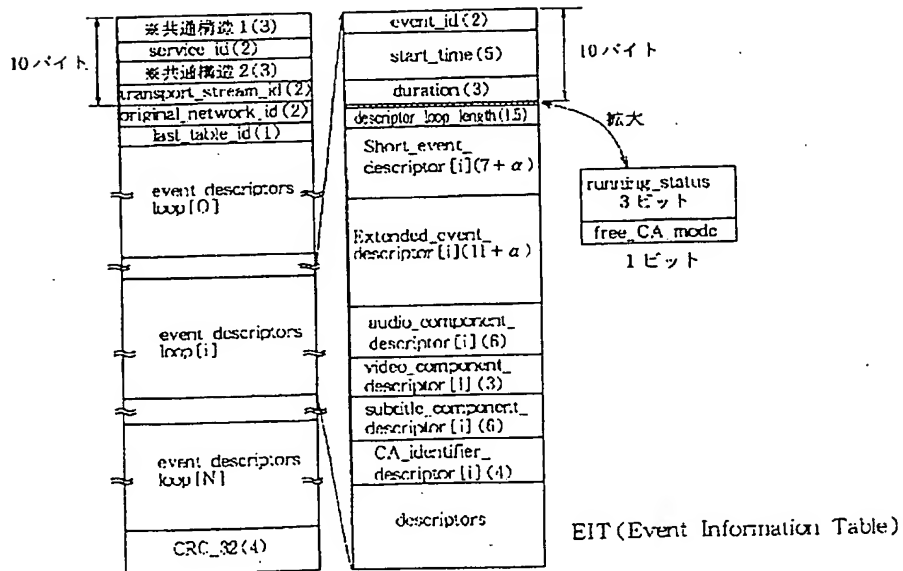 ※共通構造1(3)
service_id(2)
※共通構造2(3)
transport_stream_id(2)
original_network_id(2)
last_table_id(1)
event descriptors
loop[0]
event descriptors
loop[i]
event descriptors
loop[N]
CRC_32(4)
10バイト
event_id(2)
start_time(5)
duration(3)
descriptor_loop_length(1.5)
Short_event_
descriptor[i](7+α)
Extended_event_
descriptor[i](11+α)
audio_component_
descriptor[i](6)
video_component_
descriptor[i](3)
subtitle_component_
descriptor[i](6)
CA_identifier_
descriptor[i](4)
descriptors
10バイト
拡大
running_status
3ビット
free_CA_mode
1ビット
EIT(Event Information Table)